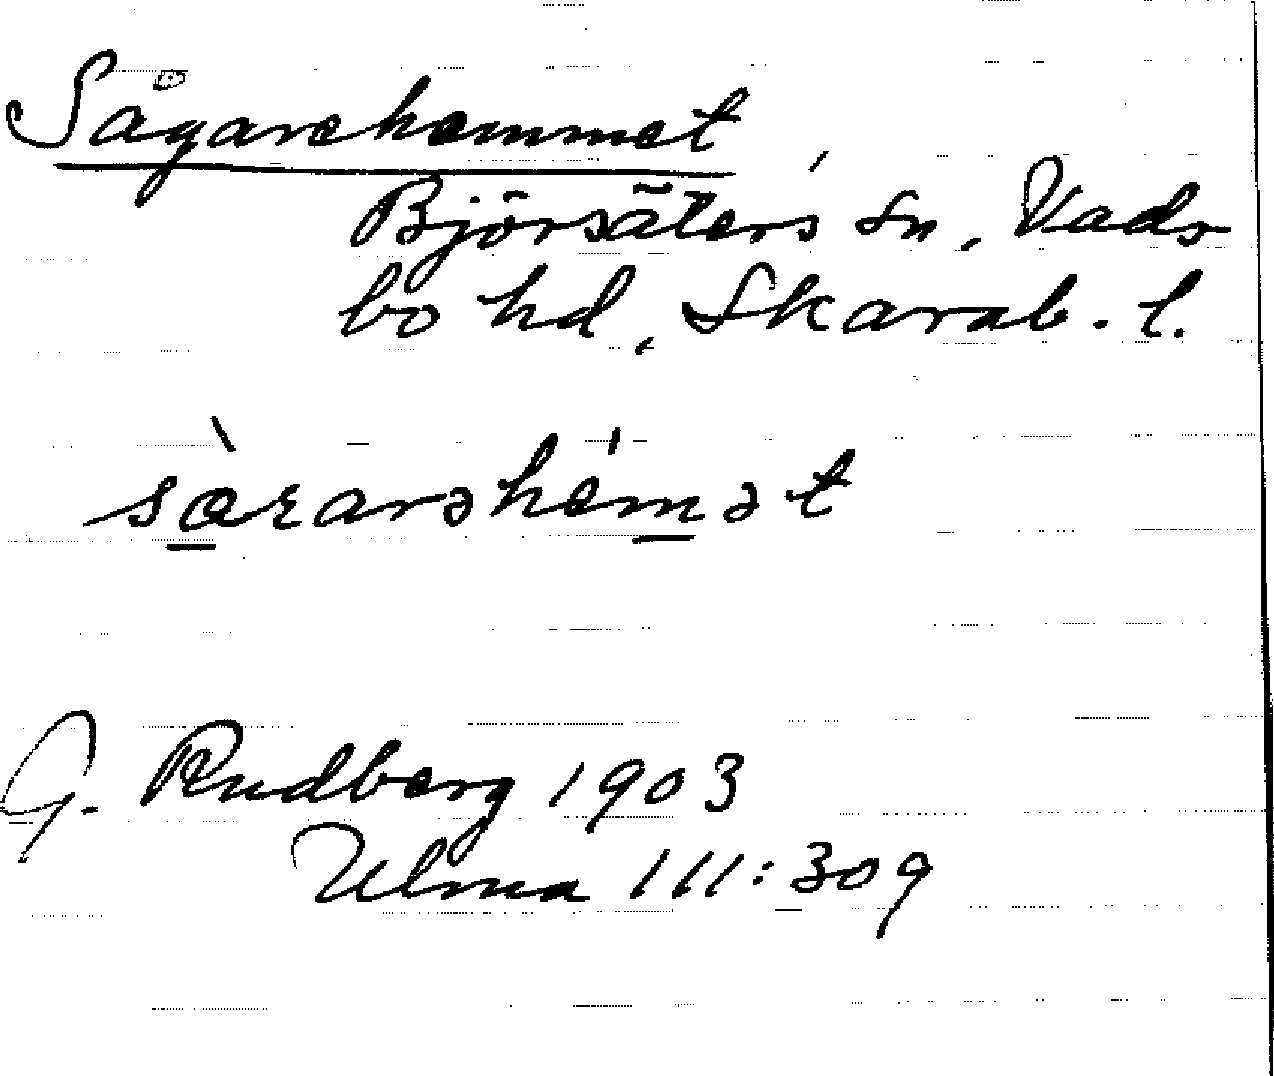 Sågarehemmet
Björsäters sn, Vads
bo hd, Skarab. l.
sɑ̀ɛarəhémət
G. Rudberg 1903
Ulma 111:309